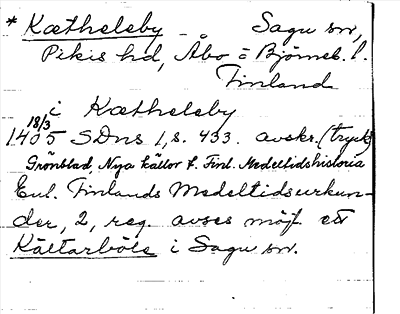 * Kætheleby - Sagu sn,
Pikis hd, Åbo o Björneb. l.
Finland
i Kætheleby
18/3
1405 SDns 1, s. 433. avskr. (tryck
Grönblad, Nya källor t. Finl. Medeltidshistoria
Enl. Finlands Medeltidsurkun-
der, 2, reg. avses möjl. ett
Kättarböle i Sagu sn.